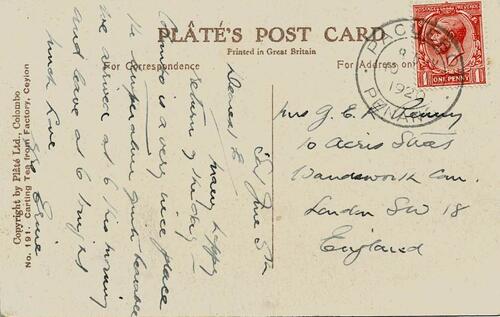 PLÂTÉ'S POST CARD
Printed in Great Britain
For Correspondence
For Address only
POSTAGE REVENUE
1 ONE PENNY 1
PACQUEBOT
192
PENANG
Mrs G. E. K. Penny
10 Acris Street
Wandsworth Com.
London SW 18
England
Sat June 8th
Dearest E
Many happy
returns of the day —
Colombo is a very nice place
the temperature quite bearable
We arrived at 6 this morning
and leave at 6 tonight
much love
Copyright by Plâté Ltd. Colombo
No. 191. Carting Tea from Factory, Ceylon